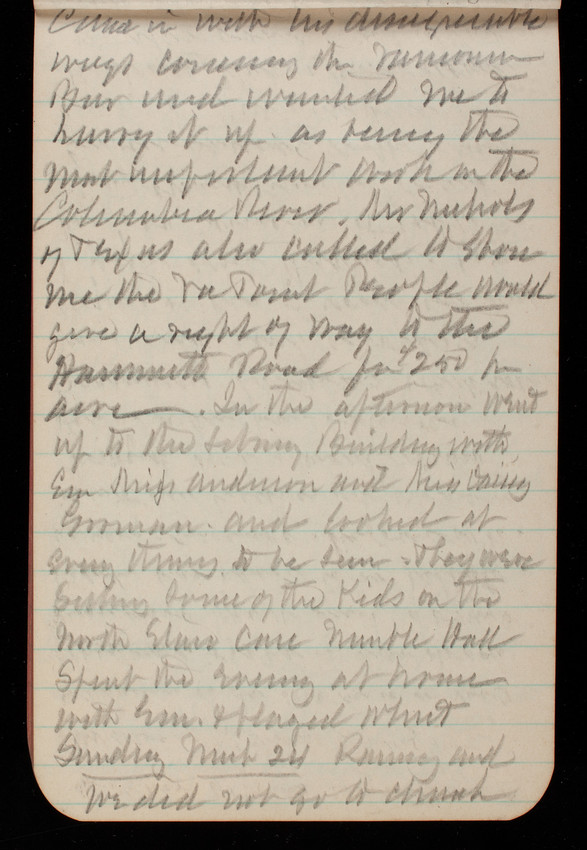 Came in with his disagreeable
ways concerning the Vancouver
Bar and wanted me to
hurry it up as being the
most important work on the
Columbia River. Mr Nichols
of Texas also called to show
me the Point People would
give a right of way to the
Hammett Road for $250 per
acre. In the afternoon went
up to the Library Building with
Em Miss Anderson and Miss
Gorman and looked at
every thing to be seen. They were
Setting Some of the Kids on the
North Stair Case Marble Hall
Spent the evening at home
with Em. & played Whist
Sunday Mch 24 Raining and
we did not go to church